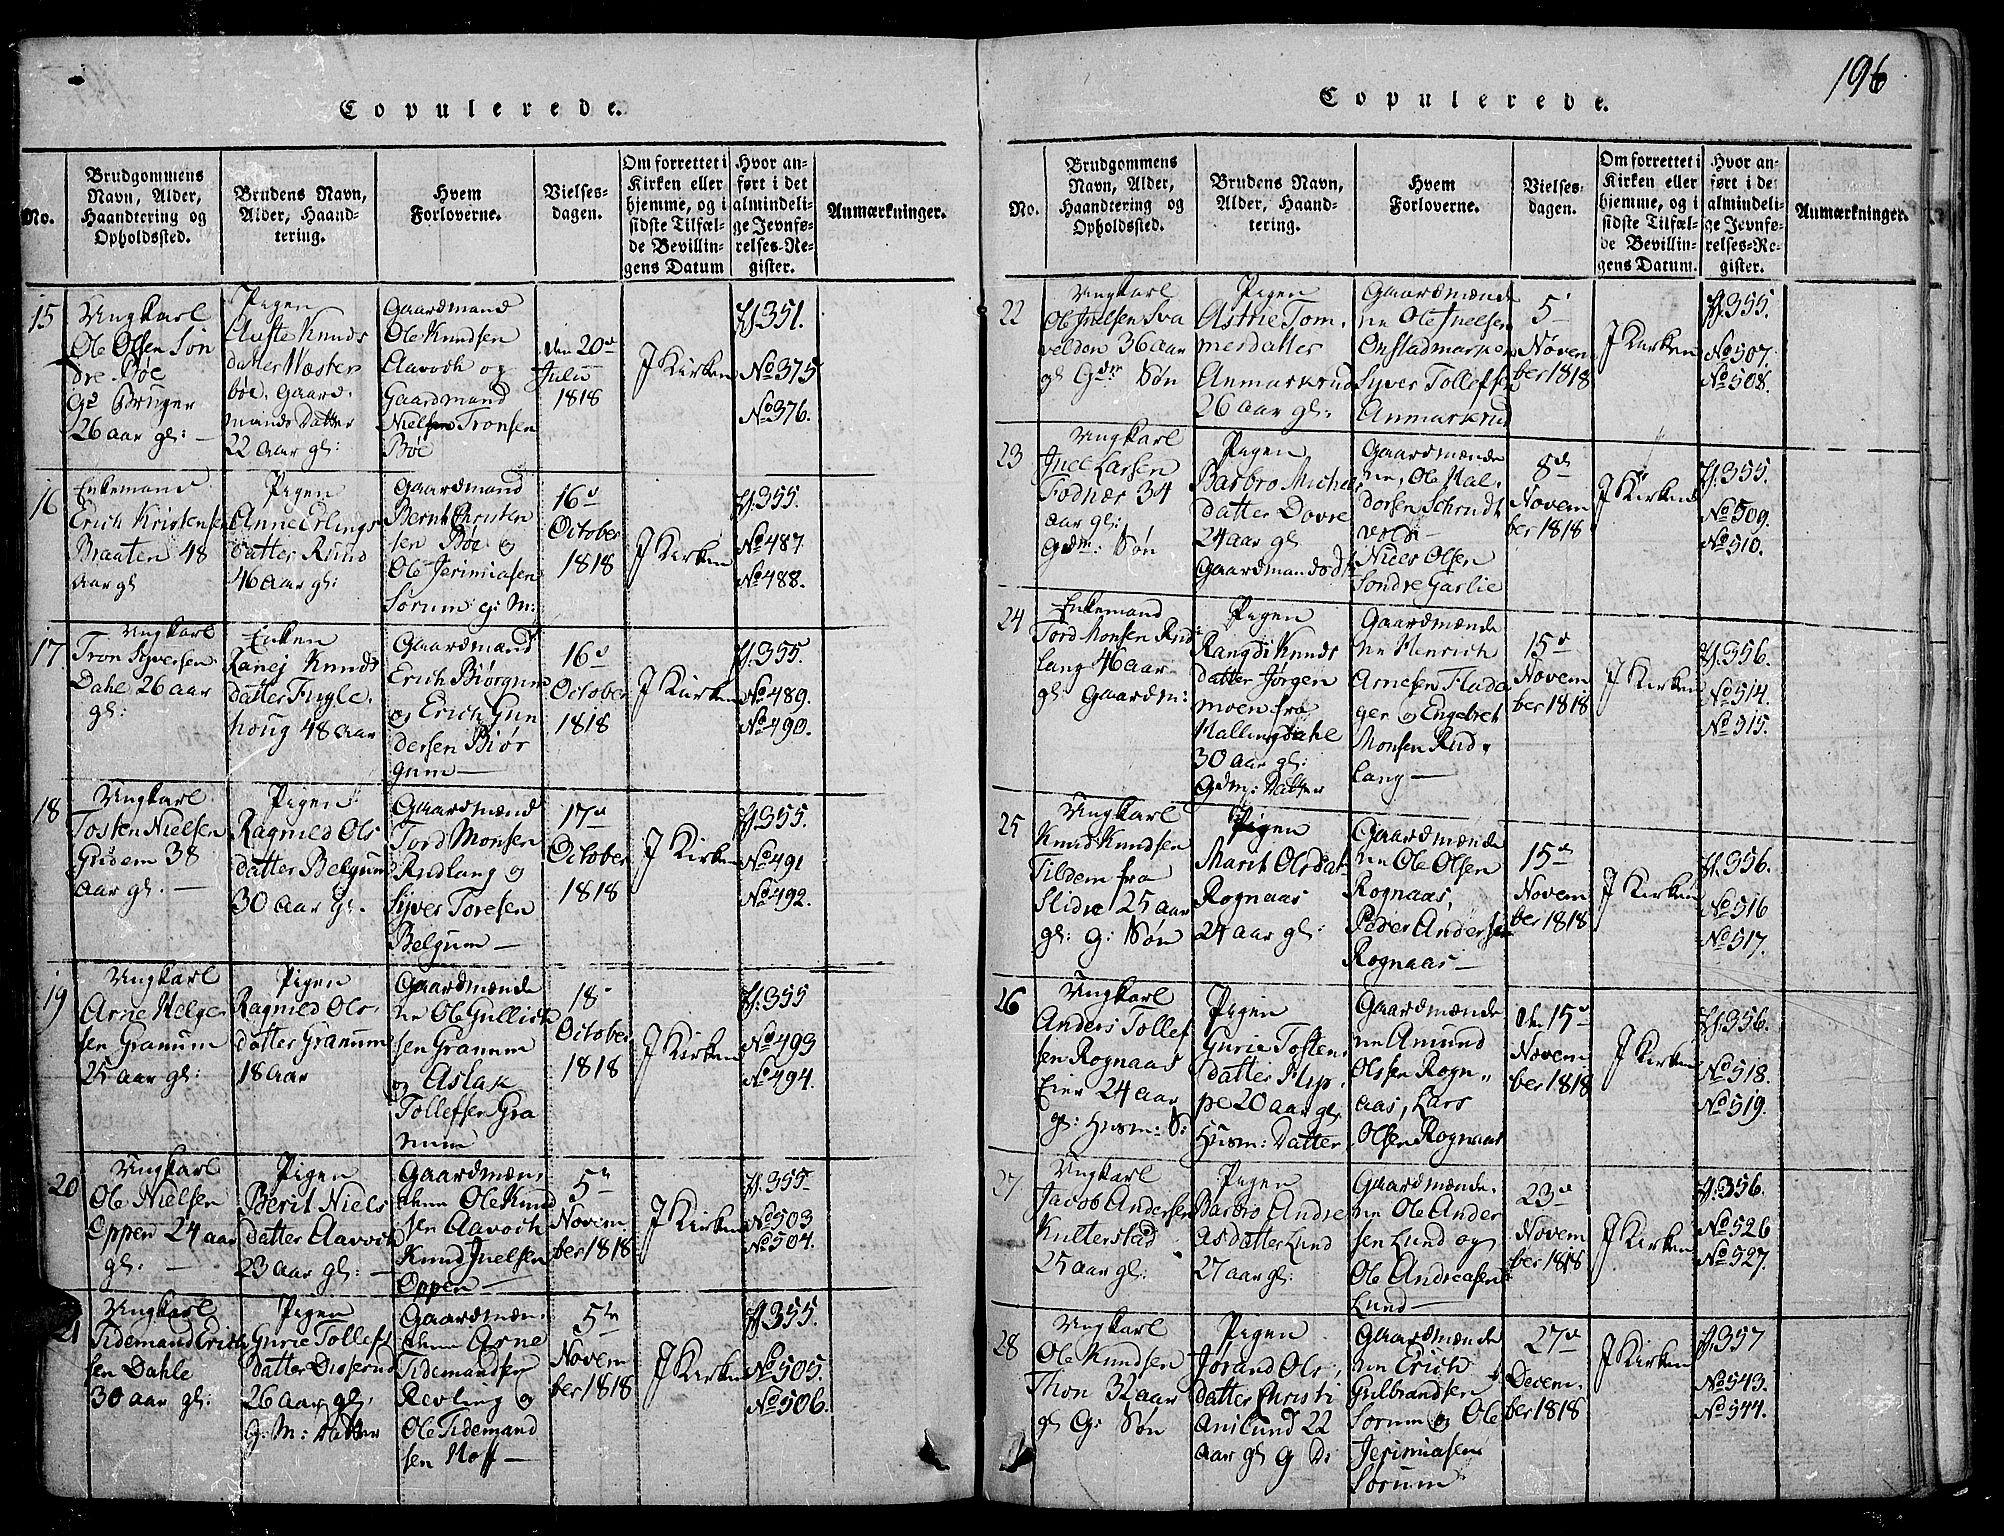 Copulerede.
No.
Brudgommens
Navn, Alder,
Haandtering og
Opholdssted.
Brudens Navn,
Alder, Haand-
tering.
Hvem
Forloverne.
Vielses-
dagen.
Om forrettet i
Kirken eller
hjemme, og i
sidste Tilfæl-
de Bevillin-
gens Datum
Hvor an-
ført i det
almindeli-
ge Jevnfø-
relses-Re-
gister.
Anmærkninger.
15
Ungkarl
Ole Olsen Søn
dre Bøe
Gd Bruger
26 aar gl: —
Pigen
Knuds
datter Wæster
bøe. Gaard-
mands Datter
22 aar gl:
Gaardmand
Ole Knudsen
Aavoch og
Gaardmand
Nielsen Tronsen
Bøe
den 20de
Julii
1818
J Kirken
351.
No 375
No 376.
16
Enkemand
Erich Kristensen
Braaten 48
aar gl
Pigen
Anne Erlings
datter Rund
46 aar gl:
Gaardmand
Bernt Christen
sen Bøe og
Ole Jerimiasen
Sorum g: M:
16d
October
1818
J Kirken
355.
No 487
No 488.
17
Ungkarl
Tron Syversen
Dahl 26 aar
gl:
Enken
Ranej Knuds
datter Fugle
houg 48 aar
Gaardmænd
Erich Biørgum
og Erich Gun
dersen Biør
gum —
16d
October
1818
J Kirken
355.
No 489.
No 490.
18
Ungkarl
Tosten Nielsen
38
aar gl. —
Pigen
Ragnild Ols
datter Belgum
30 aar gl.
Gaardmænd
Tord Monsen
Rudlang og
Syver Toresen
Belgum —
17d
October
1818
J Kirken
355.
No 491
No 492.
19
Ungkarl
Arne Helge
sen Granum
25 aar gl:
Pigen
Ragnild Ols
datter Granum
18 aar
Gaardmænde
ne Ole Gullich
sen Granum
og Aslak
Tollefsen Gra
num
18
October
1818
J Kirken
355
No 493
No 494.
20
Ungkarl
Ole Nielsen
Oppen 24 aar
gl: —
Pigen
Berit Niels
datter Aavoch
23 aar gl: —
Gaardmæn-
dene Ole Knud
sen Aavoch
Knud Juelsen
Oppen —
5te
Novem
ber 1818
J Kirken
355
No 503
No 504.
21
Ungkarl
Tidemand Erich
sen Dahle
30 aar gl:
Pigen
Gurie Tollefs
datter
26 aar gl,
G: M: datter
Gaardmæn-
dene Arne
Tidemandsen
Revling og
Ole Tidemand
sen Hoff —
5te
Novem
ber 1818
J Kirken
355.
No 505.
No 506.
196
Copulerede.
No.
Brudgommens
Navn, Alder,
Haandtering og
Opholdssted.
Brudens Navn,
Alder, Haand-
tering.
Hvem
Forloverne.
Vielses-
dagen.
Om forrettet i
Kirken eller
hjemme, og i
sidste Tilfæl-
de Bevillin-
gens Datum.
Hvor an-
ført i det
almindeli-
ge Jevnfø-
relses-Re-
gister.
Anmærkninger.
22
Ungkarl
Ole Juelsen Sva
36 aar
gl Søn
Pigen
Astrie Tom-
mesdatter
Anmarkrud
26 aar gl:
Gaardmænde
ne Ole Juelsen
Onstadmarken
Syver Tollefsen
Anmarkrud
5
Novem
ber 1818
J Kirken
355.
No 507.
No 508.
23
Ungkarl
Juel Larsen
Fodnæs 34
aar gl:
Gdm: Søn
Pigen
Barbro Michels
datter Dovre
24 aar gl
Gaardmandsdt
Gaardmænde
ne, Ole Hal-
dorsen Schrudt
vold —
Niels Olsen
Søndre Garlie
8de
Novem
ber 1818
J Kirken
355.
No 509.
No 510.
24
Enkemand
Tord Monsen Rud-
lang 46 aar
gl Gaardm:
Pigen
Rangdi Knuds
datter Jørgen
moen fra
Hallingdahl
30 aar gl:
Gdm: Datter
Gaardmænde
ne Henrich
Arnesen Flada
ger og Engebret
Monsen Rud-
lang —
15d
Novem
ber 1818
J Kirken
356.
No 514.
No 515.
25
Ungkarl
Knud Knudsen
Tildem fra
Slidre 25 aar
gl: g: Søn
Pigen
Marit Olsdat
Rognaas
24 aar gl:
Gaardmænde
ne Ole Olsen
Rognaas,
Peder Andersen
Rognaas —
15de
Novem
ber 1818
J Kirken
356.
No 516
No 517.
26
Ungkarl
Anders Tollef
sen Rognaas
Eier 24 aar
gl: Husm: S:
Pigen
Gurie Tostens
datter
pe 20 aar gl.
Husm: Datter
Gaardmænde
ne Amund
Olsen Rogn-
aas, Lars
Olsen Rognaas
den 15d
Novem
ber 1818
J Kirken
356.
No 518.
No 519.
27
Ungkarl
Jacob Andersen
Kulterstad
25 aar gl:
Pigen
Barbro Andre
asdatter Lund
27 aar gl:
Gaardmænde-
ne Ole Ander
sen Lund og
Ole Andreasen
Lund —
23d
Novem
ber 1818
J Kirken
356.
No 526
No 527.
28
Ungkarl
Ole Knudsen
Thon 32 aar
gl G: Søn
Pigen
Jørand Ols-
datter Christi
anslund 22
aar gl G D:
Gaardmænde
ne Erich
Gulbrandsen
Sorum og Ole
Jerimiasen
Sorum
27d
Decem-
ber 1818
J Kirken
357
No 543.
No 544.